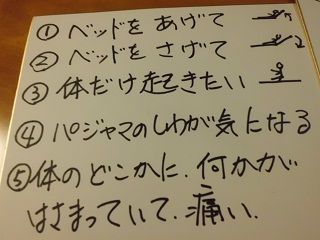 ① ベッドを あげて
② ベッドを さげて
③ 体だけ起きたい
④ パジャマのしわが気になる
⑤体のどこかに、何かが
はさまっていて、痛い、